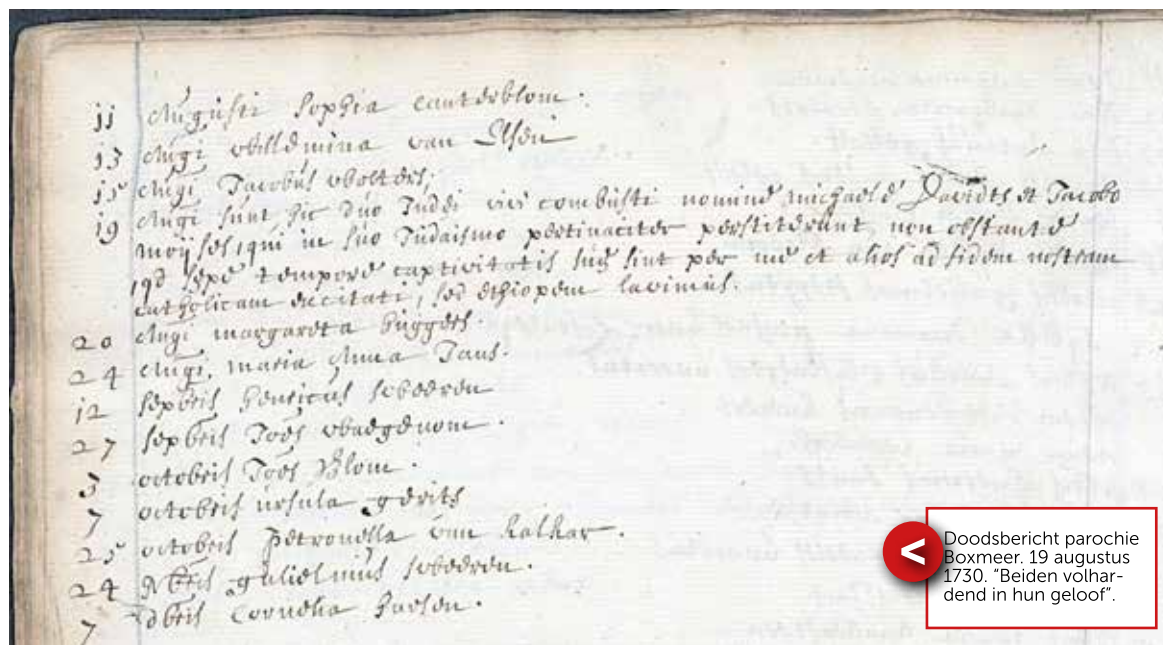 11 Augusti Sophia Canterblom.
13 Augi Willemina van Elsen
15 Augi Jacobus Wolters,
19 Augi sunt hic duo Judei vivi combusti nomine michaele Davidts et Jacobo
moijses, qui in suo Judaismo pertinaciter perstiterunt, non obstante
qd sepe tempore captivitatis sue sint per me et alios ad fidem nostram
catholicam excitati, sed ethiopem lavimus.
20 Augi margareta
24 Augi. maria Anna
12 septbris henricus
27 septbris Joes
3 octobris Joes Blom.
7 octobris ursula gerits
25 octobris Petronella van kalkar.
24 gulielmus
7 Cornelia
<
Doodsbericht parochie
Boxmeer. 19 augustus
1730. “Beiden volhar-
dend in hun geloof”.